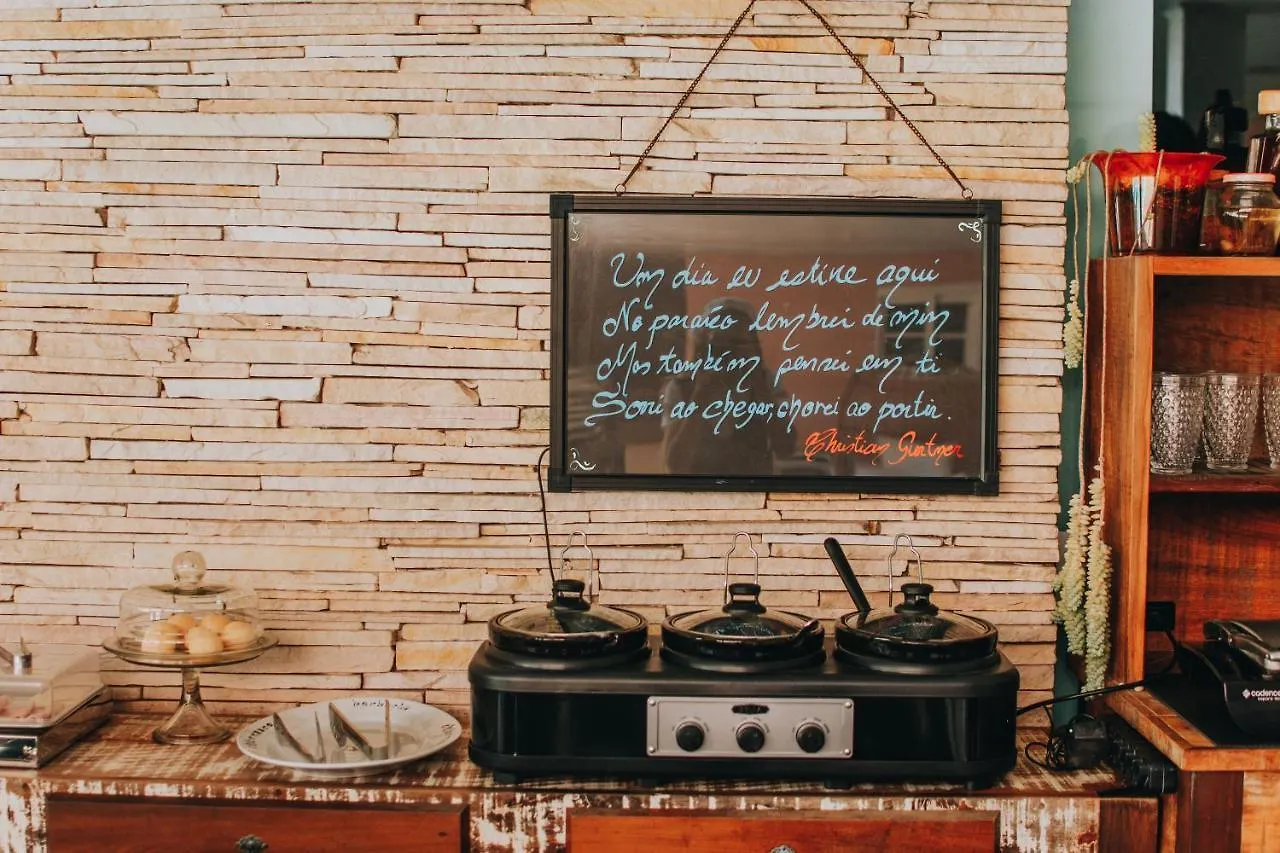 Um dia eu estive aqui
No paraíso lembrei de mim
Mas também pensei em ti
Sorri ao chegar, chorei ao partir.
Christian Guntner
cadence